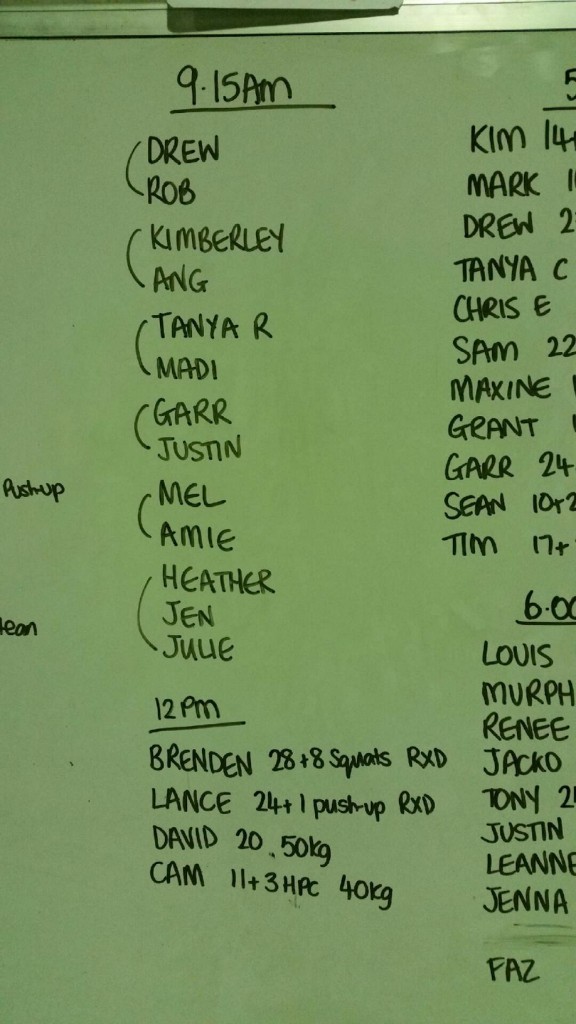 Push-up
9.15AM
DREW
ROB
KIMBERLEY
ANG
TANYA R
MADI
GARR
JUSTIN
MEL
AMIE
HEATHER
JEN
JULIE
12PM
BRENDEN 28+8 Squats RXD
LANCE 24+1 push-up RXD
DAVID 20 .50kg
CAM 11+3HPC 40kg
KIM 14+
MARK
DREW 2
TANYA C
CHRIS E
SAM 22
MAXINE
GRANT
GARR 24
SEAN 10+2
TIM 17+
6.00
LOUIS
MURPH
RENEE
JACKO
TONY
JUSTIN
LEANNE
JENNA
FAZ